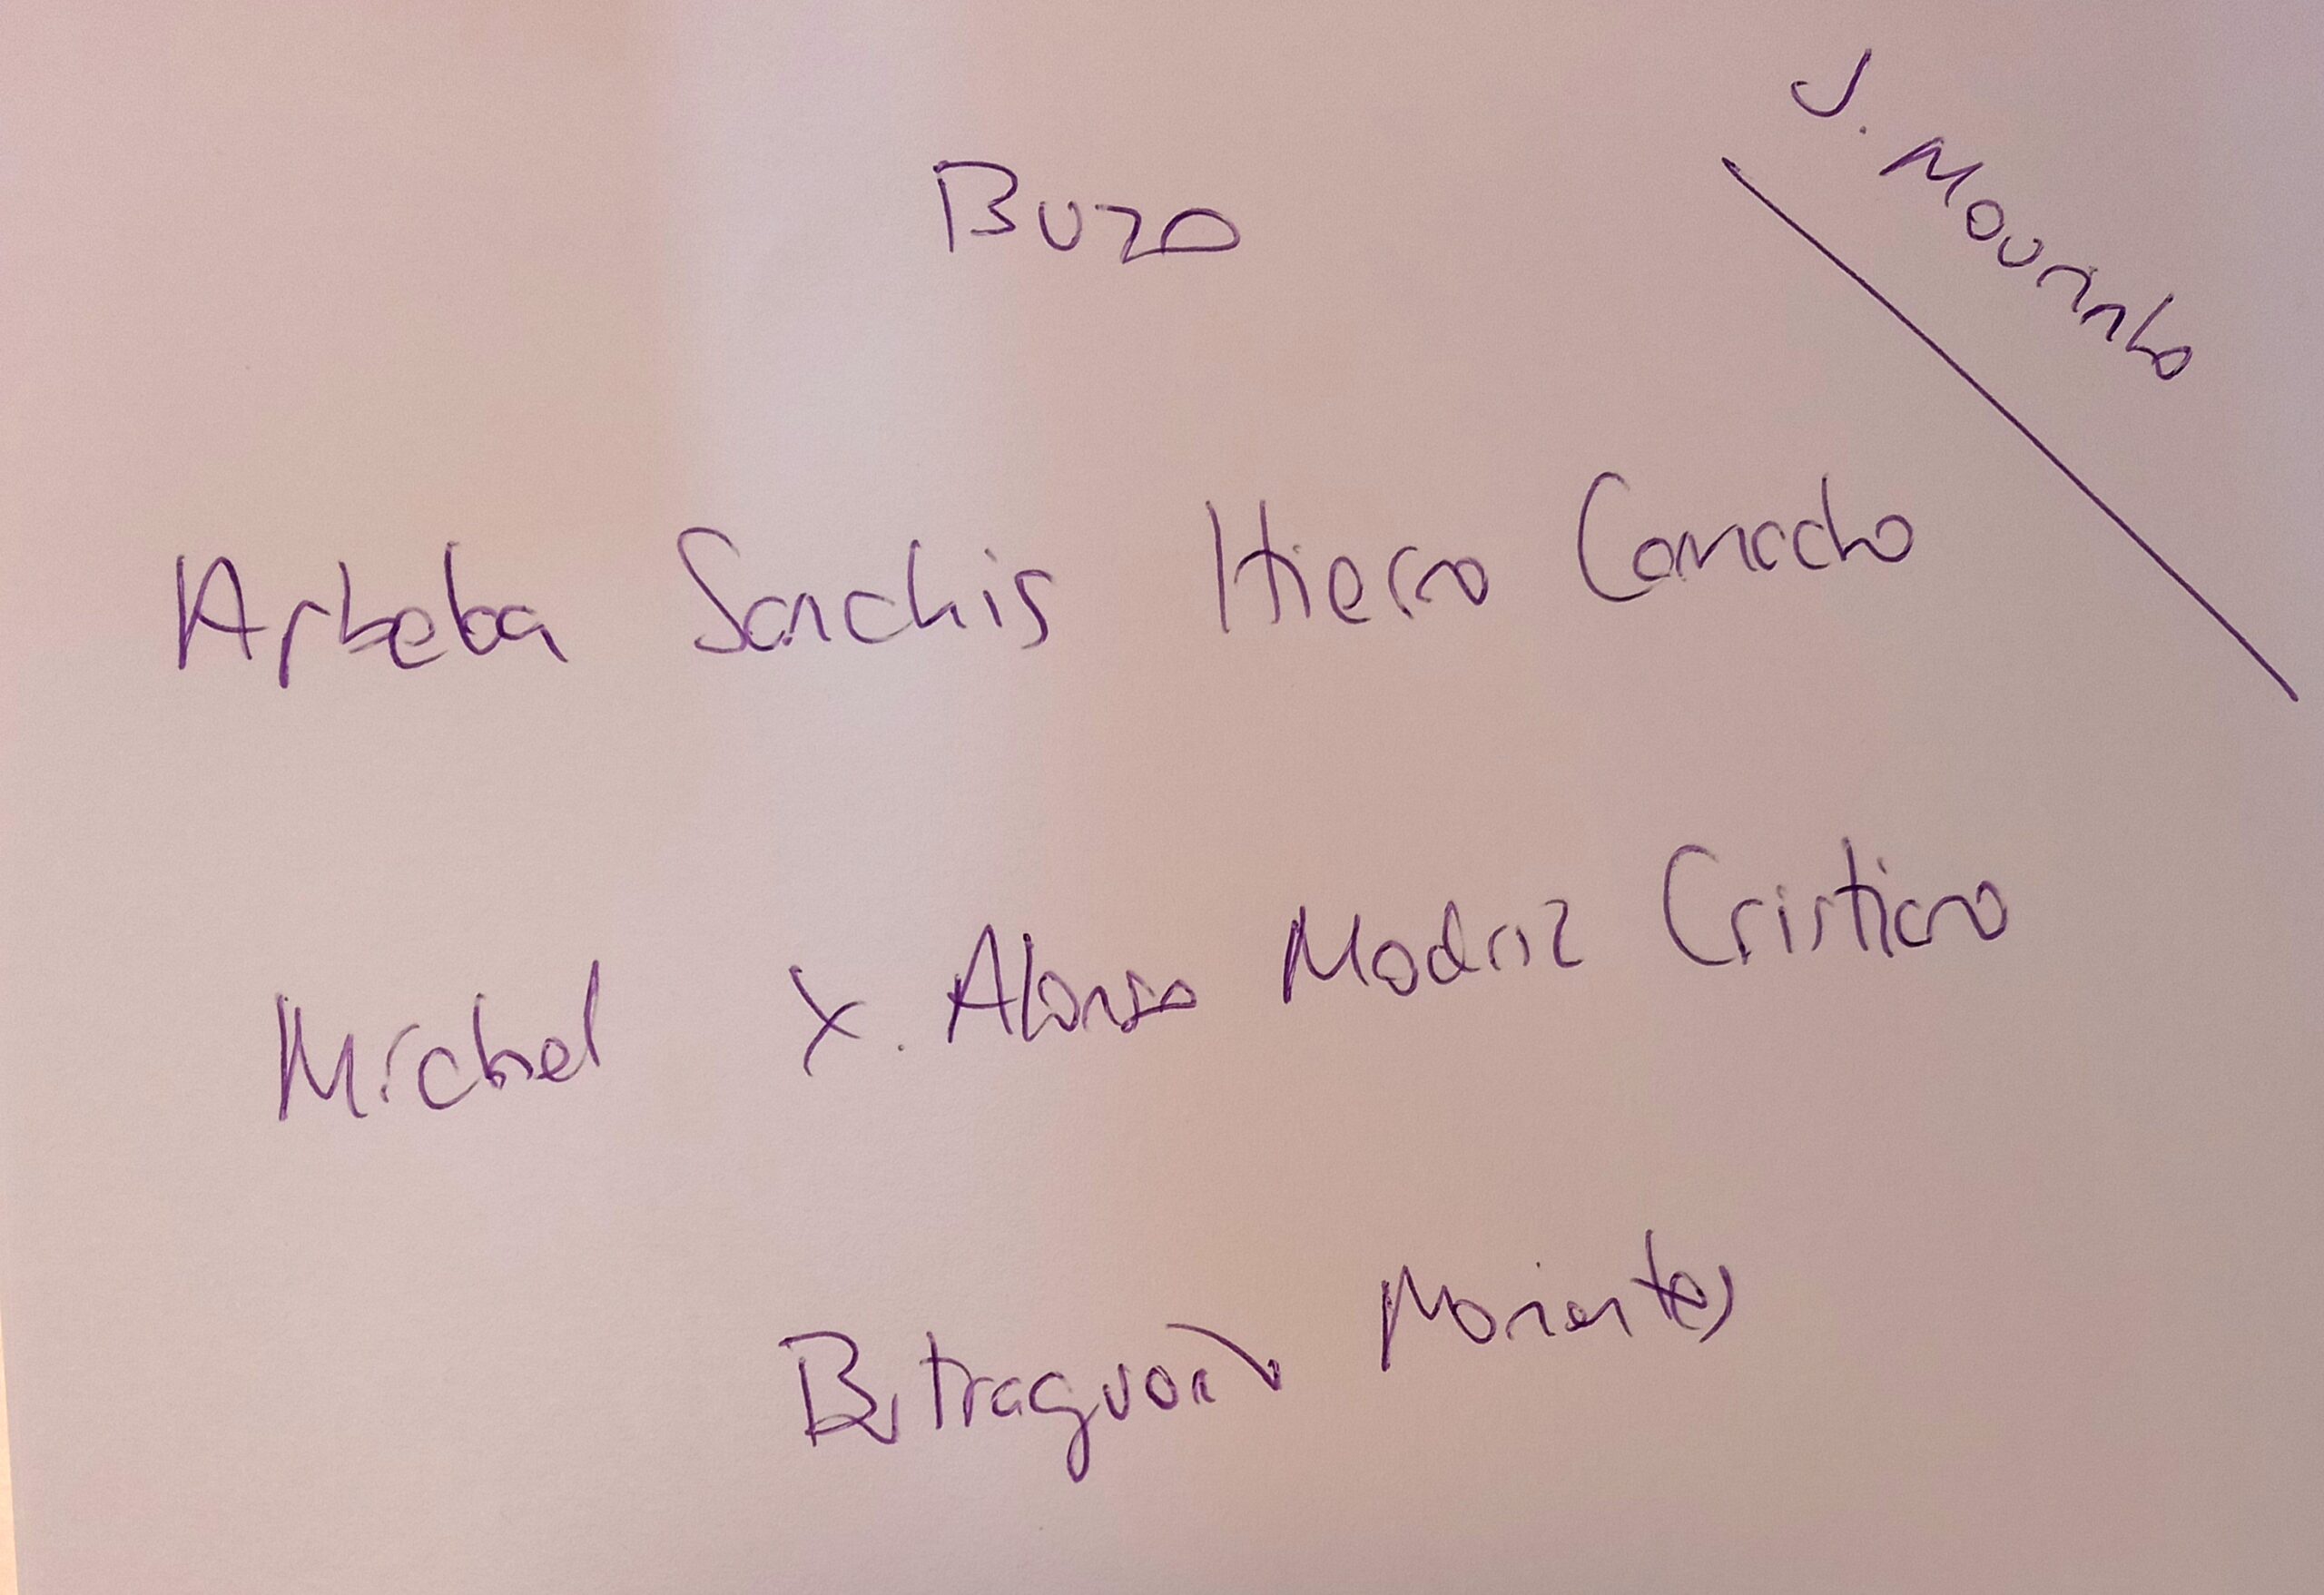 J. Mourinho
Buzo
Arbeloa Sanchis Hierro Camacho
Michel X. Alonso Modriz Cristiano
Butragueño Morientes